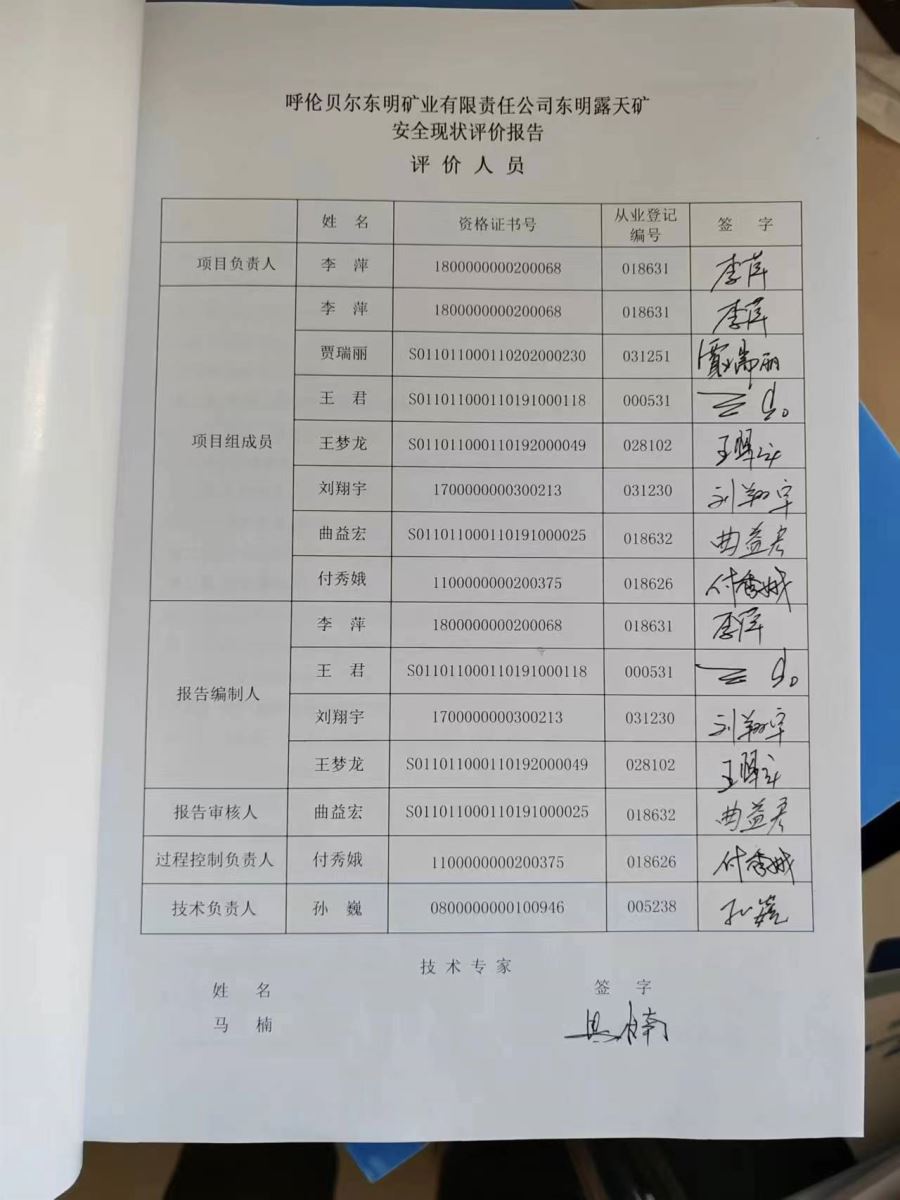 呼伦贝尔东明矿业有限责任公司东明露天矿
安全现状评价报告
评价人员
姓 名 资格证书号 从业登记编号 签 字
项目负责人 李 萍 1800000000200068 018631 李萍
项目组成员 李 萍 1800000000200068 018631 李萍
贾瑞丽 S011011000110202000230 031251 贾瑞丽
王 君 S011011000110191000118 000531
王梦龙 S011011000110192000049 028102 王梦龙
刘翔宇 1700000000300213 031230 刘翔宇
曲益宏 S011011000110191000025 018632 曲益宏
付秀娥 1100000000200375 018626 付秀娥
报告编制人 李 萍 1800000000200068 018631 李萍
王 君 S011011000110191000118 000531
刘翔宇 1700000000300213 031230 刘翔宇
王梦龙 S011011000110192000049 028102 王梦龙
报告审核人 曲益宏 S011011000110191000025 018632 曲益宏
过程控制负责人 付秀娥 1100000000200375 018626 付秀娥
技术负责人 孙 巍 0800000000100946 005238 孙巍
技术专家
姓 名 签 字
马 楠 马楠